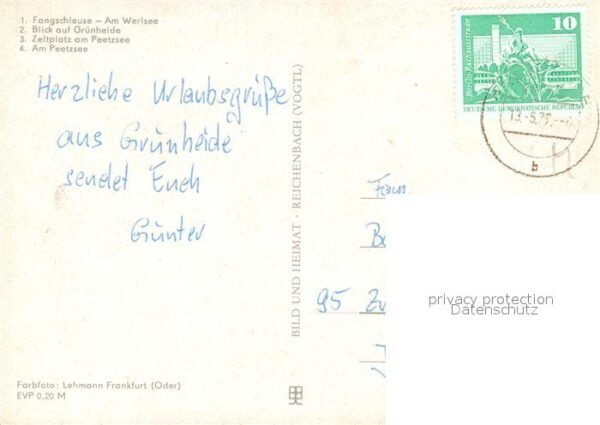 1. Fangschleuse – Am Werlsee
2. Blick auf Grünheide
3. Zeltplatz am Peetzsee
4. Am Peetzsee
Herzliche Urlaubsgrüße
aus Grünheide
sendet Euch
Günter
BILD UND HEIMAT · REICHENBACH (VOGTL)
10
Berlin-Rathausstraße
DEUTSCHE DEMOKRATISCHE REPUBLIK
b
Fam
95
privacy protection
Datenschutz
Farbfoto: Lehmann Frankfurt (Oder)
EVP 0,20 M